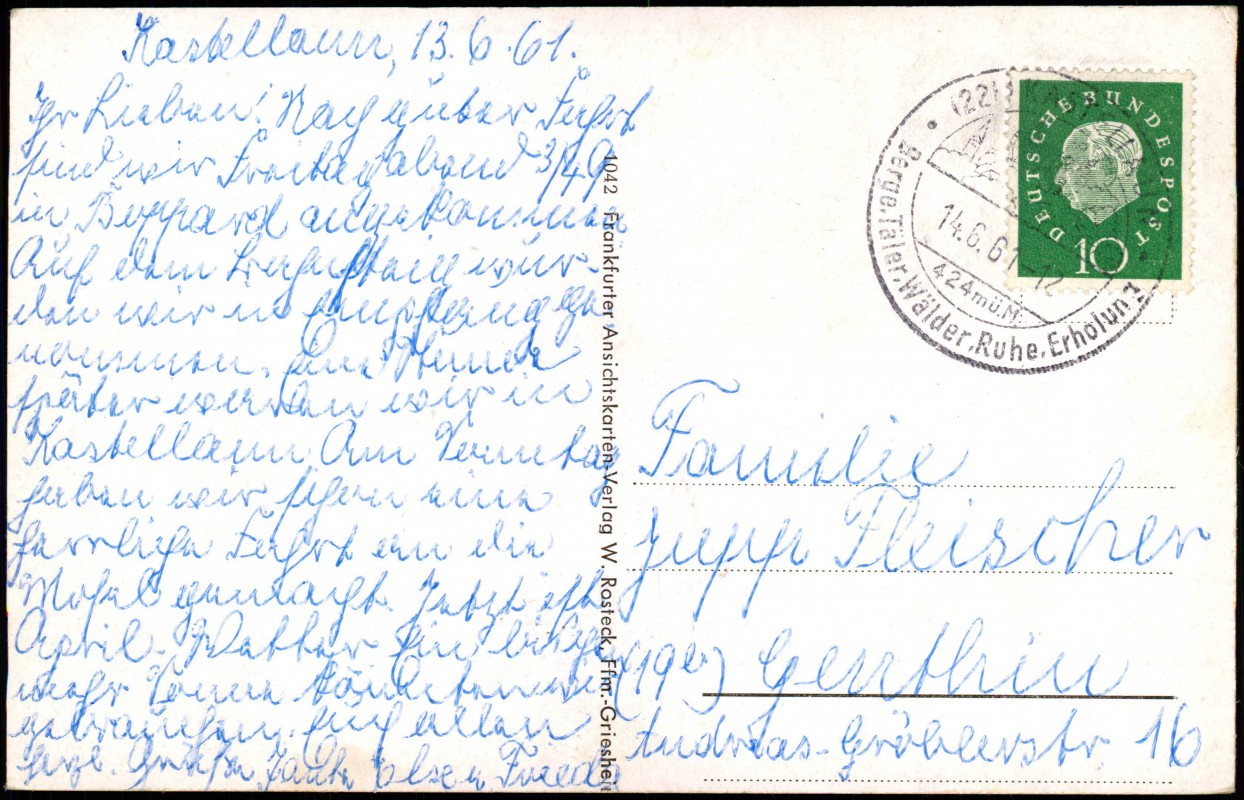 Kastellaun, 13.6.61.
Ihr Lieben! Nach guter Fahrt
sind wir Freitagabend 3/49
in Boppard angekommen
Auf dem wur-
den wir in Empfang ge
nommen. Eine Stunde
später waren wir in
Kastellaun Am Sonntag
haben wir schon eine
herrliche Fahrt an die
Mosel gemacht. Jetzt ist
April-Wetter Ein bischen
mehr Sonne könnten wir
gebrauchen. Euch allen
herzl. Grüße Tante Else u Frieda
1042 Frankfurter Ansichtskarten-Verlag W. Rosteck, Ffm.-Griesheim
(22)
14.6.61-12
424 m ü.M.
Berge, Täler, Wälder, Ruhe, Erholung
DEUTSCHE BUNDESPOST
10
Familie
Jupp Fleischer
(19b) Genthin
Andreas-Gröblerstr. 16